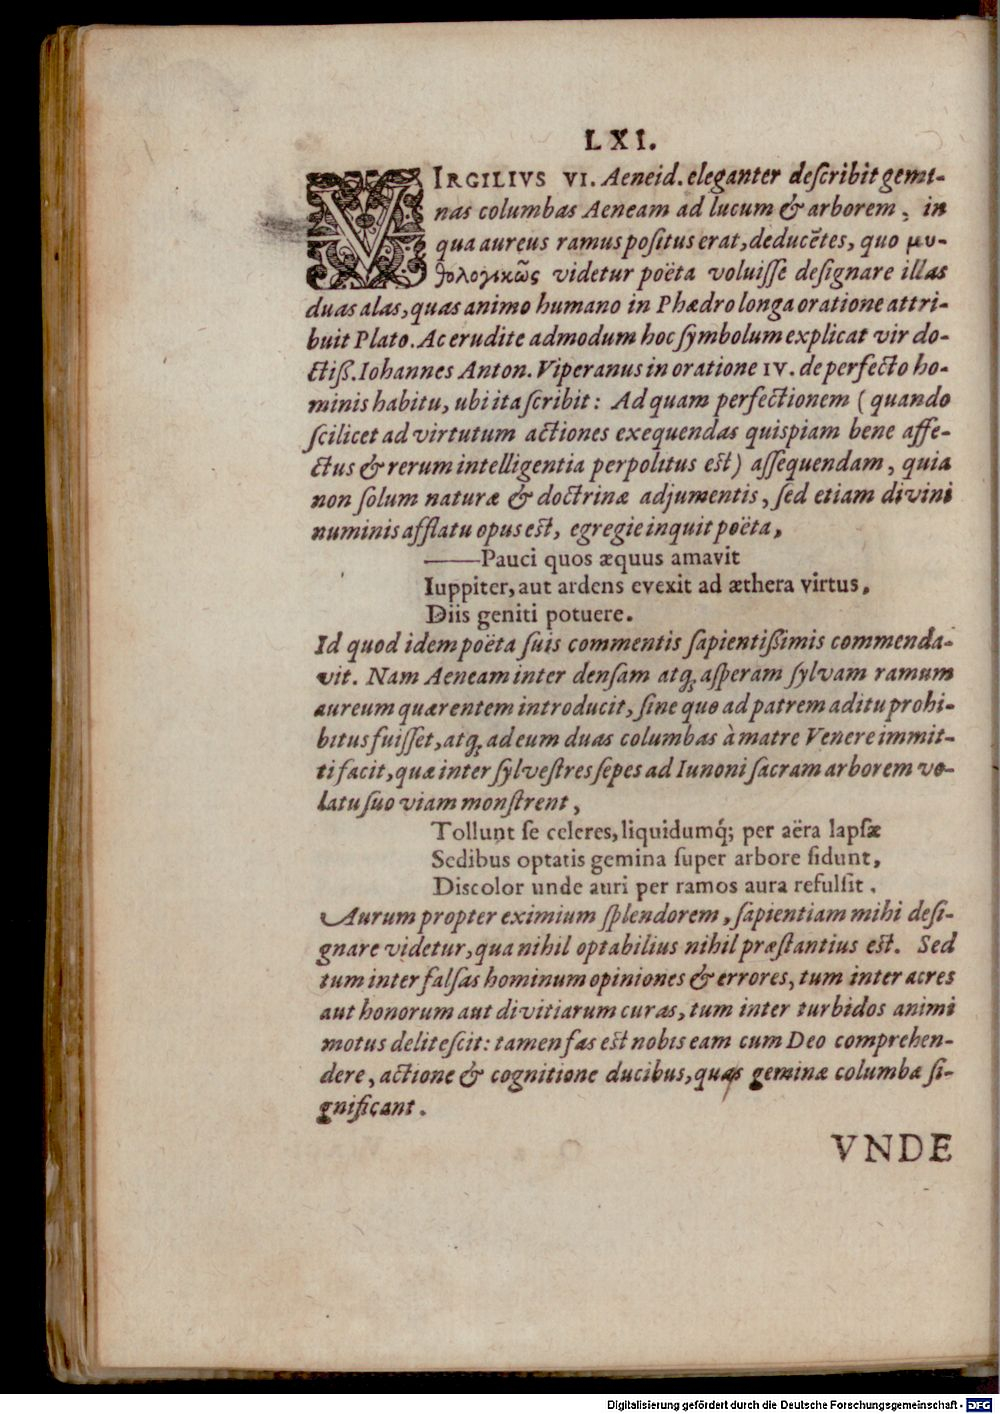 LXI.
VIRGILIVS VI. Aeneid. eleganter deſcribit gemi-
nas columbas Aeneam ad lucum & arborem, in
qua aureus ramus poſitus erat, deducētes, quo μυ-
θολογικῶς videtur poëta voluiſſe deſignare illas
duas alas, quas animo humano in Phædro longa oratione attri-
buit Plato. Ac erudite admodum hoc ſymbolum explicat vir do-
ctiß. Iohannes Anton. Viperanus in oratione IV. de perfecto ho-
minis habitu, ubi ita ſcribit: Ad quam perfectionem (quando
ſcilicet ad virtutum actiones exequendas quispiam bene affe-
ctus & rerum intelligentia perpolitus est) aſſequendam, quia
non ſolum naturæ & doctrinæ adjumentis, ſed etiam divini
numinis afflatu opus est, egregie inquit poëta,
——Pauci quos æquus amavit
Iuppiter, aut ardens evexit ad æthera virtus,
Diis geniti potuere.
Id quod idem poëta ſuis commentis ſapientißimis commenda-
vit. Nam Aeneam inter denſam atq; aſperam ſylvam ramum
aureum quærentem introducit, ſine quo ad patrem aditu prohi-
bitus fuiſſet, atq; ad eum duas columbas à matre Venere immit-
ti facit, quæ inter ſylveſtres ſepes ad Iunoni ſacram arborem vo-
latu ſuo viam monſtrent,
Tollunt ſe celeres, liquidumq́; per aëra lapſæ
Sedibus optatis gemina ſuper arbore ſidunt,
Discolor unde auri per ramos aura refulſit.
Aurum propter eximium ſplendorem, ſapientiam mihi deſi-
gnare videtur, qua nihil optabilius nihil præſtantius est. Sed
tum inter falſas hominum opiniones & errores, tum inter acres
aut honorum aut divitiarum curas, tum inter turbidos animi
motus deliteſcit: tamen fas est nobis eam cum Deo comprehen-
dere, actione & cognitione ducibus, quas geminæ columbæ ſi-
gnificant.
VNDE
Digitalisierung gefördert durch die Deutsche Forschungsgemeinschaft - DFG